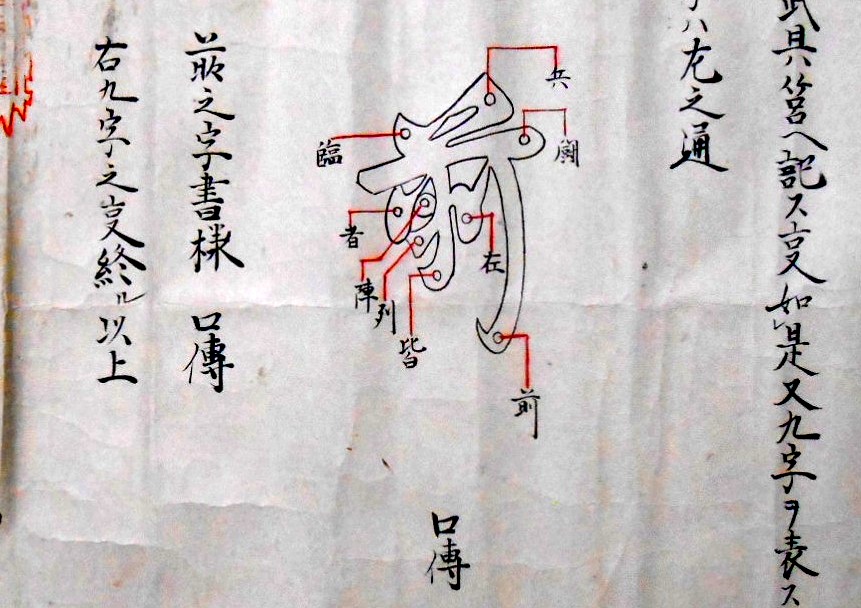 武具筥ヘ記ス亊如レ是又九字ヲ表ス
ハ左之通
兵
闘
臨
者
陣
列
皆
在
前
口傳
之字書様 口傳
右九字之亊終ル以上